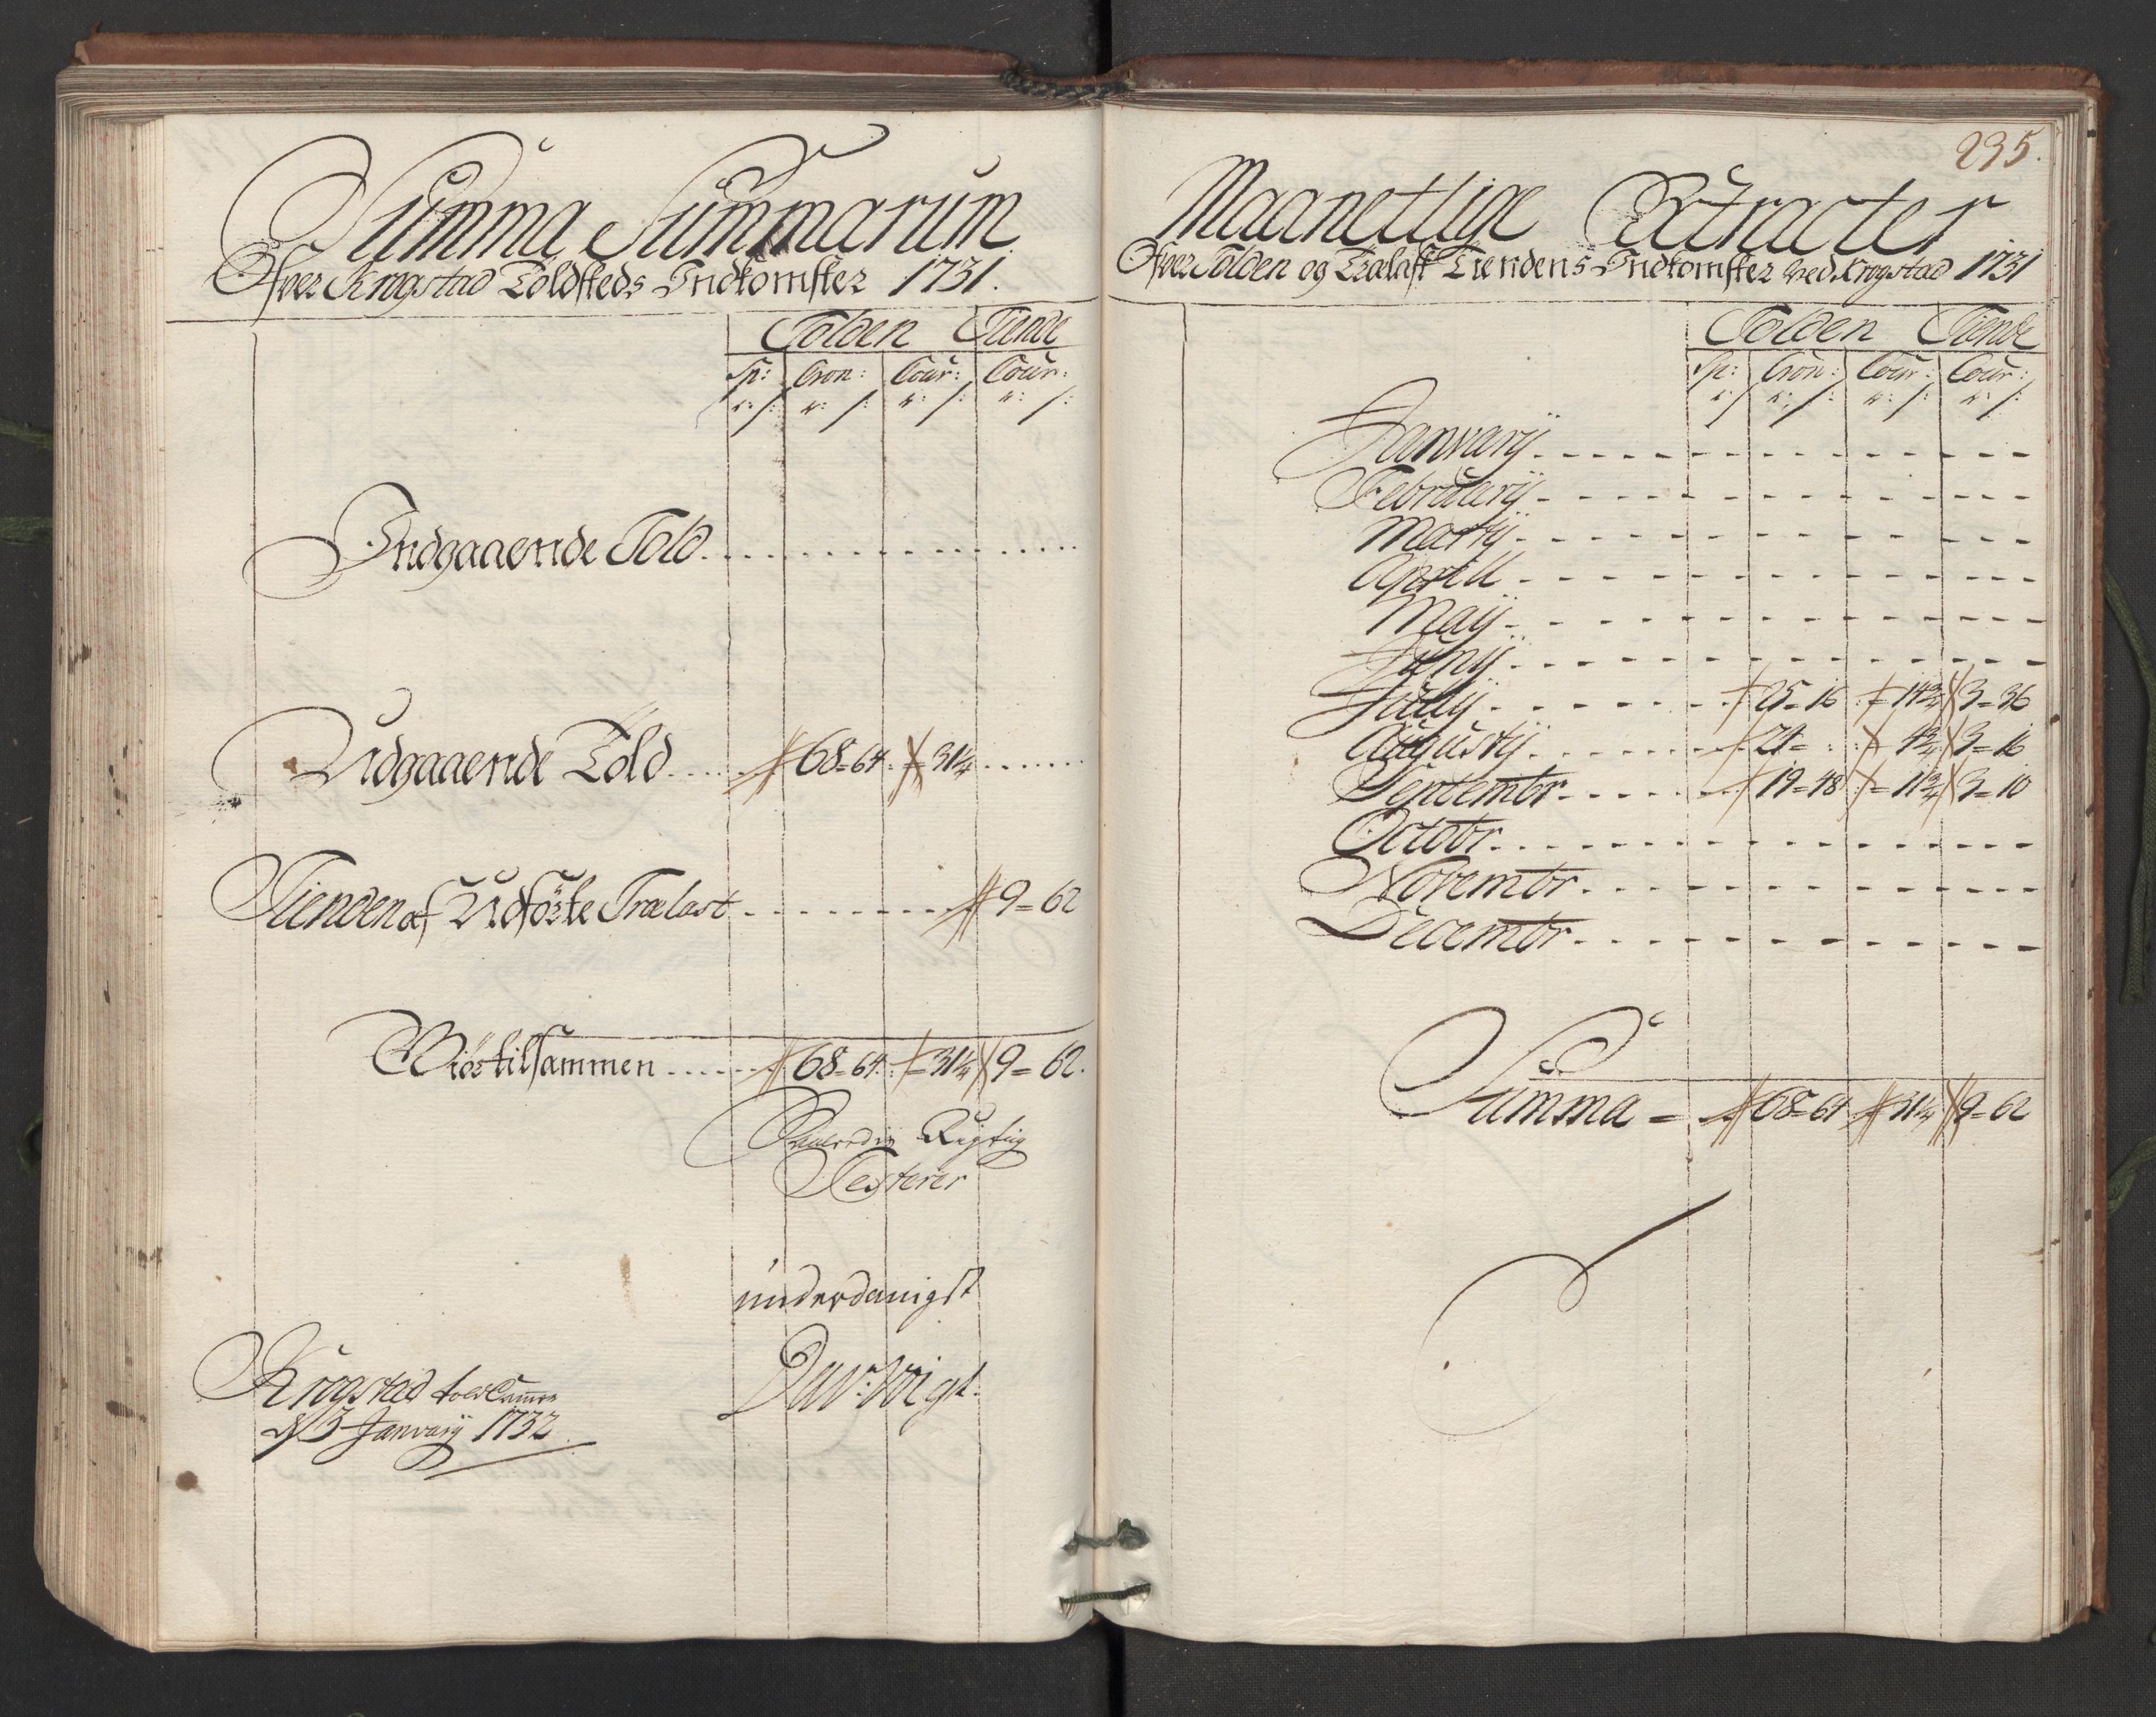 Summa Summarum
Ofver Krogstad Toldsteds Indkomster 1731.
Tolden Tiende
Sp: Cron: Cour: Cour:
r: s: r: s: r: s: r: s:
Indgaaende Told
Udgaaende Told 68=64. =31¼
Tienden af Udförte Trælast 9=62
Giör tilsammen 68=64. =31¼ 9=62.
Rigtig
Testerer
underdanigst
Dav: Voigt.
Krogstad told Cammer
d 3 Janvarij 1732.
235.
Maanetlige Extracter
Ofver Tolden og Trælast Tiendens Indkomster ved Krogstad 1731
Tolden Tiende
Sp: Cron: Cour: Cour:
r: s: r: s: r: s: r: s:
Janvarij
Februarij
Martij
Aprill
Maij
Junij
Julij 25=16 =14¾ 3=36
Augustij 24= : 4¾ 3=16
Septembr 19=48 =11¾ 3=10
Octobr
Novembr
Decembr
Summa = 68=64 31¼ 9=62